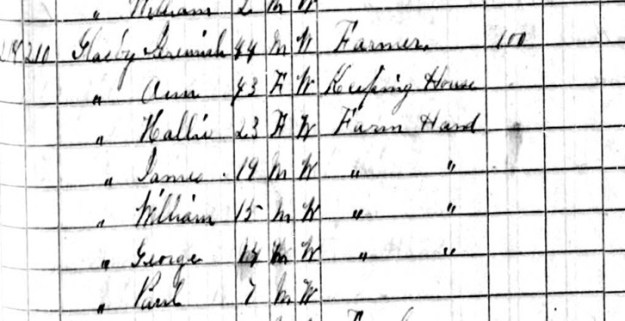 " William 2 M W
210 Glasby Jeremiah 44 M W Farmer. 100
" Ann 43 F W Keeping House
" Hallie 23 F W Farm Hand
" James 19 M W " "
" William 15 M W " "
" George M W " "
" Paul 7 M W